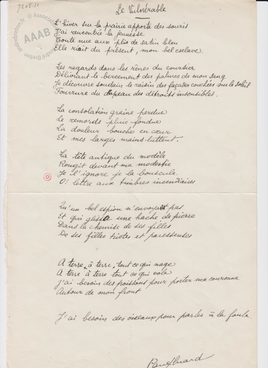 Le Vulnérable
L'hiver sur la prairie apporte des souris
J'ai rencontré la jeunesse
Toute nue aux plis de satin bleu
Elle riait du présent, mon bel esclave
Les regards dans les rênes du coursier
Délivrant le bercement des palmes de mon sang
Je découvre soudain le raisin des façades couchées sur le soleil
Fourrure du drapeau des détroits insensibles
La consolation graine perdue
Le remords pluie fondue
La douleur bouche en cœur
Et mes larges mains luttent
La tête antique du modèle
Rougit devant ma modestie
Je l'ignore je la bouscule
O! lettre aux timbres incendiaires
Qu'un bel espion n'envoya pas
Il glissa une hache de pierre
Dans la chemise de ses filles
De ses filles tristes et paresseuses
A terre, à terre tout ce qui nage
A terre, à terre tout ce qui vole
J'ai besoin des poissons pour porter ma couronne
Autour de mon front
J'ai besoin des oiseaux pour parler à la foule
Paul Eluard
AAAB